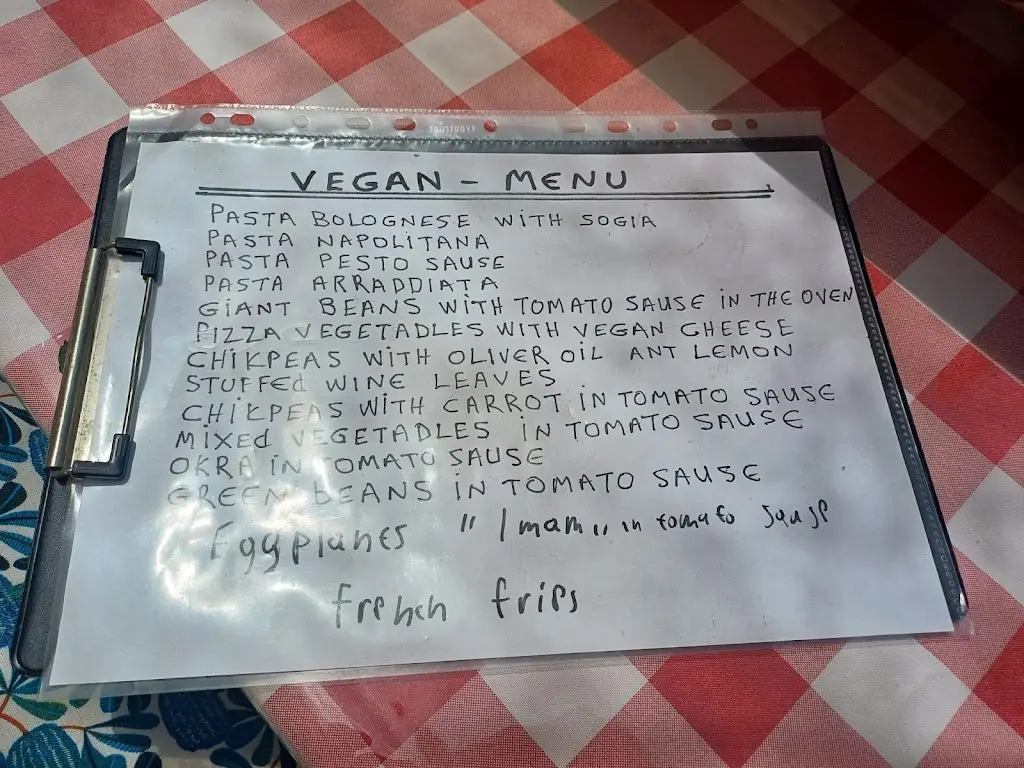 VEGAN - MENU
PASTA BOLOGNESE WITH SOGIA
PASTA NAPOLITANA
PASTA PESTO SAUSE
PASTA ARRADDIATA
GIANT BEANS WITH TOMATO SAUSE IN THE OVEN
PIZZA VEGETADLES WITH VEGAN CHEESE
CHIKPEAS WITH OLIVER OIL ANT LEMON
STUFFEd WINE LEAVES
CHIKPEAS WITH CARROT IN TOMATO SAUSE
MIXEd VEGETADLES IN TOMATO SAUSE
OKRA IN TOMATO SAUSE
GREEN bEANS IN TOMATO SAUSE
Eggplanes "Imam" in tomato sause
french fries